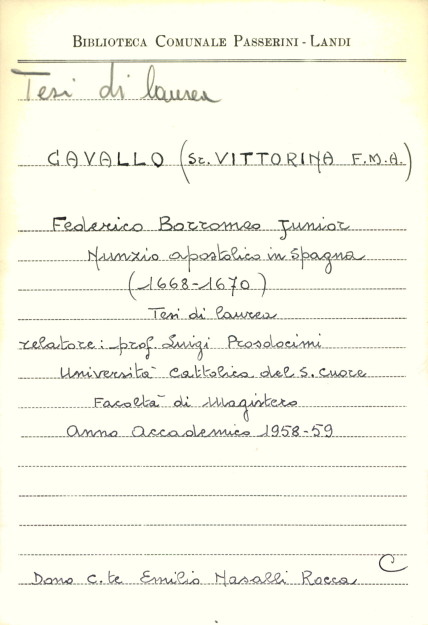 BIBLIOTECA COMUNALE PASSERINI - LANDI
Tesi di laurea
CAVALLO (Sr. VITTORINA F.M.A.)
Federico Borromeo Junior
Nunzio apostolico in Spagna
(1668-1670)
Tesi di laurea
relatore: prof. Luigi Prosdocimi
Università Cattolica del S. Cuore
Facoltà di Magistero
Anno Accademico 1958-59
C
Dono C.te Emilio Nasalli Rocca